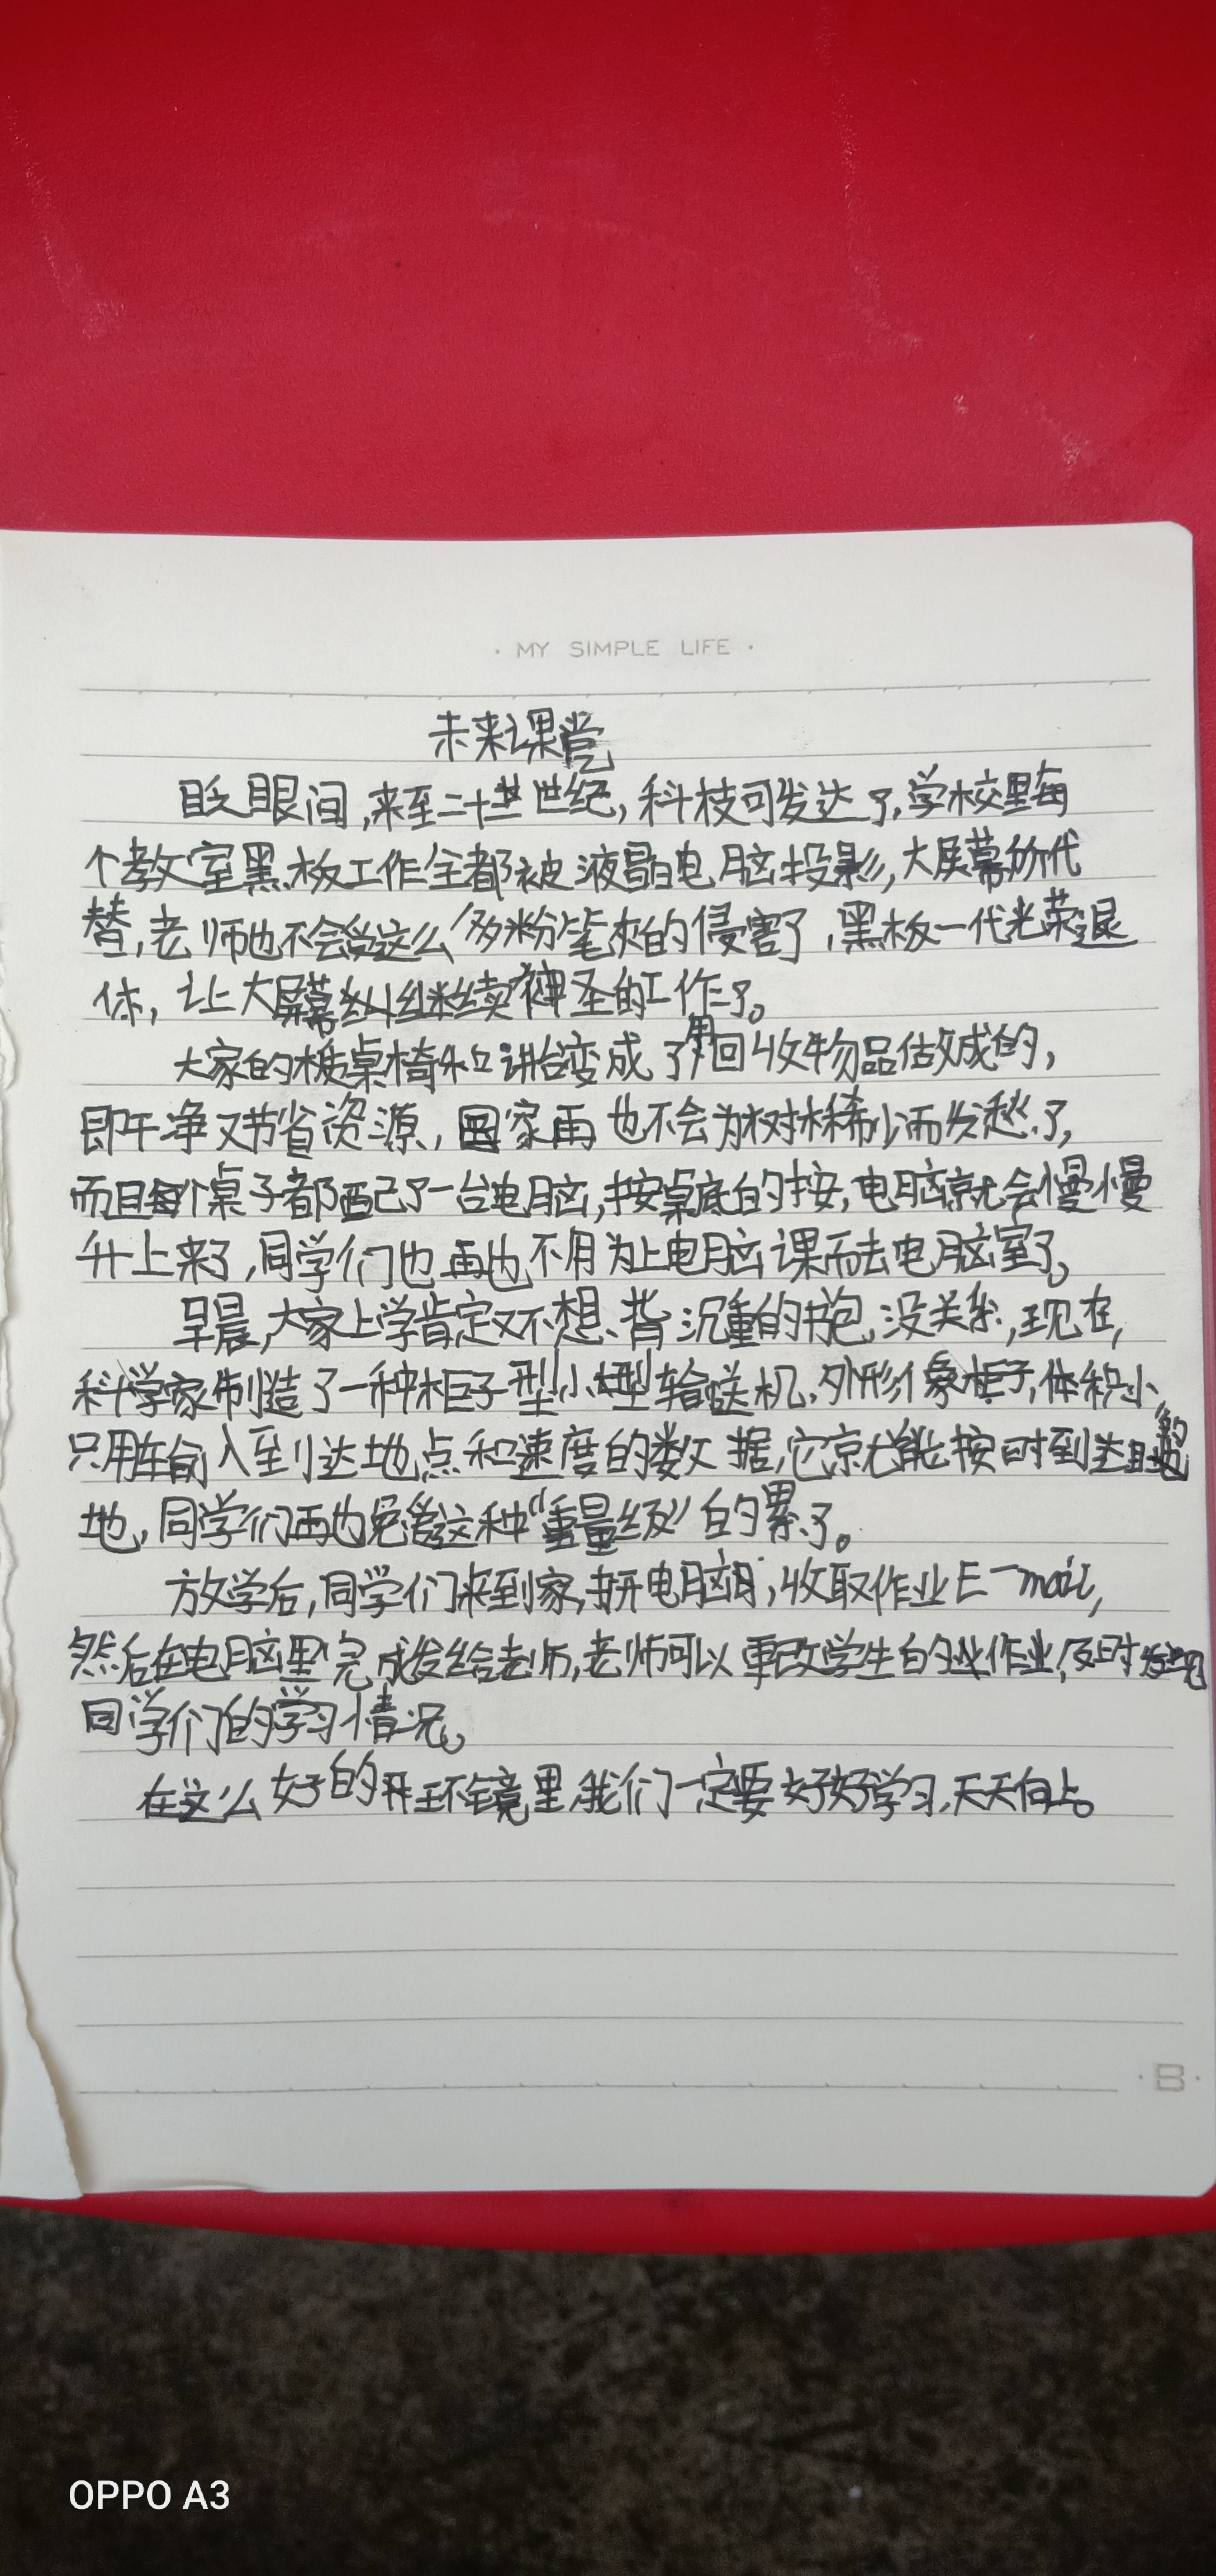 · MY SIMPLE LIFE ·
未来课堂
眨眼间,来至二十世纪,科枝可发达了,学校里每
个教室黑板工作全都被液晶电脑投影,大屏幕所代
替,老师也不会受这么多粉笔灰的侵害了,黑板一代光荣退
休,让大屏幕继续神圣的工作了。
大家的桌椅和讲台变成了用回收物品做成的,
即干净又节省资源,国家再也不会为树林稀少而发愁了,
而且每个桌子都配了一台电脑,按桌底的按,电脑就会慢慢
升上来了,同学们也再也不用为上电脑课而去电脑室了。
早晨,大家上学肯定又不想背沉重的书包,没关系,现在,
科学家制造了一种柜子型小型输送机,外形像柜子,体积小,
只用在输入到达地点和速度的数据,它就能按时到达目的
地,同学们再也免受这种“重量级”的累了。
放学后,同学们来到家,打开电脑,收取作业E-mail,
然后在电脑里完成发给老师,老师可以更改学生的作业,及时发现
同学们的学习情况。
在这么好的环镜里,我们一定要好好学习,天天向上。
·B·
OPPO A3